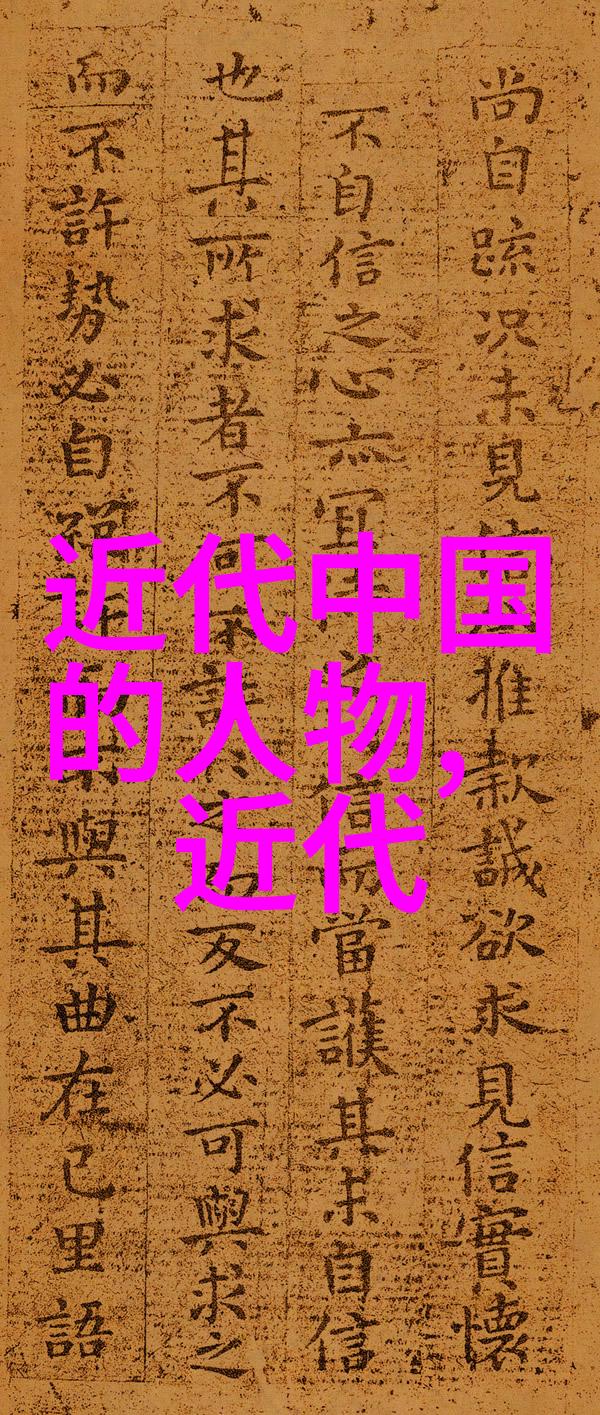 近代中国
的人物,
近代
尚自疏況未見信推款誠欲求見信實懷
不自信之心亦宜信而當護其未自信
也其所求者不可不許之而反不必可與求之
而不許勢必自與其曲在己里語